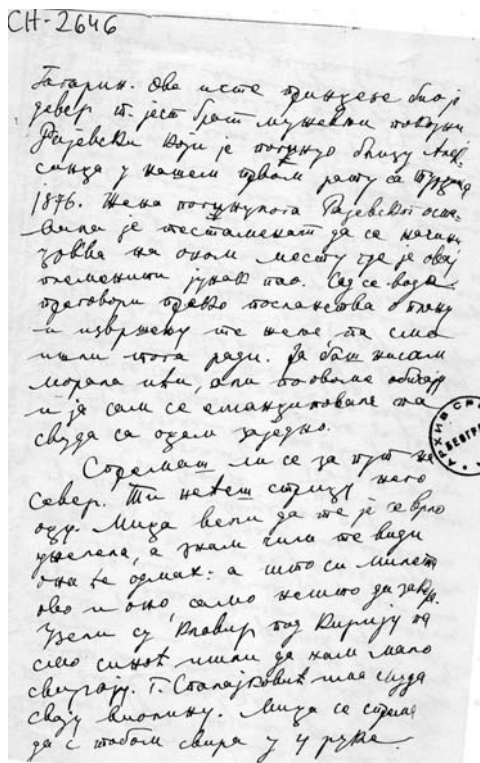 СН-2646
Гагарин. Ова исте принцезе био је
девер т. јест брат мужевљи покојни
Рајевски који је погинуо близу Алек-
синца у нашем првом рату са Турцима
1876. Жена погинулога Рајевског оста-
вила је тестаменат да се начини
црква на оном месту где је овај
племенити јунак пао. Сад се воде
преговори преко посланства о плану
и извршењу те жеље, па смо
ишли тога ради. Ја баш нисам
морала ићи, али по овоме обичају
и ја сам се еманциповала па
свуда са оцем заједно.
Спремаш ли се за пут на
север. Ти нећеш стрицу него
оцу. Мица вели да те је се врло
ужелела, а знам чим те види
она ће одмах: а што си Милета
ово и оно, само нешто да
Узели су клавир под кирију па
смо синоћ ишли да нам мало
свирају. Г. Спалајковић има
своју виолину. Мица се спрема
да с тобом свира у 4 руке.
АРХИВ СР
БЕОГР